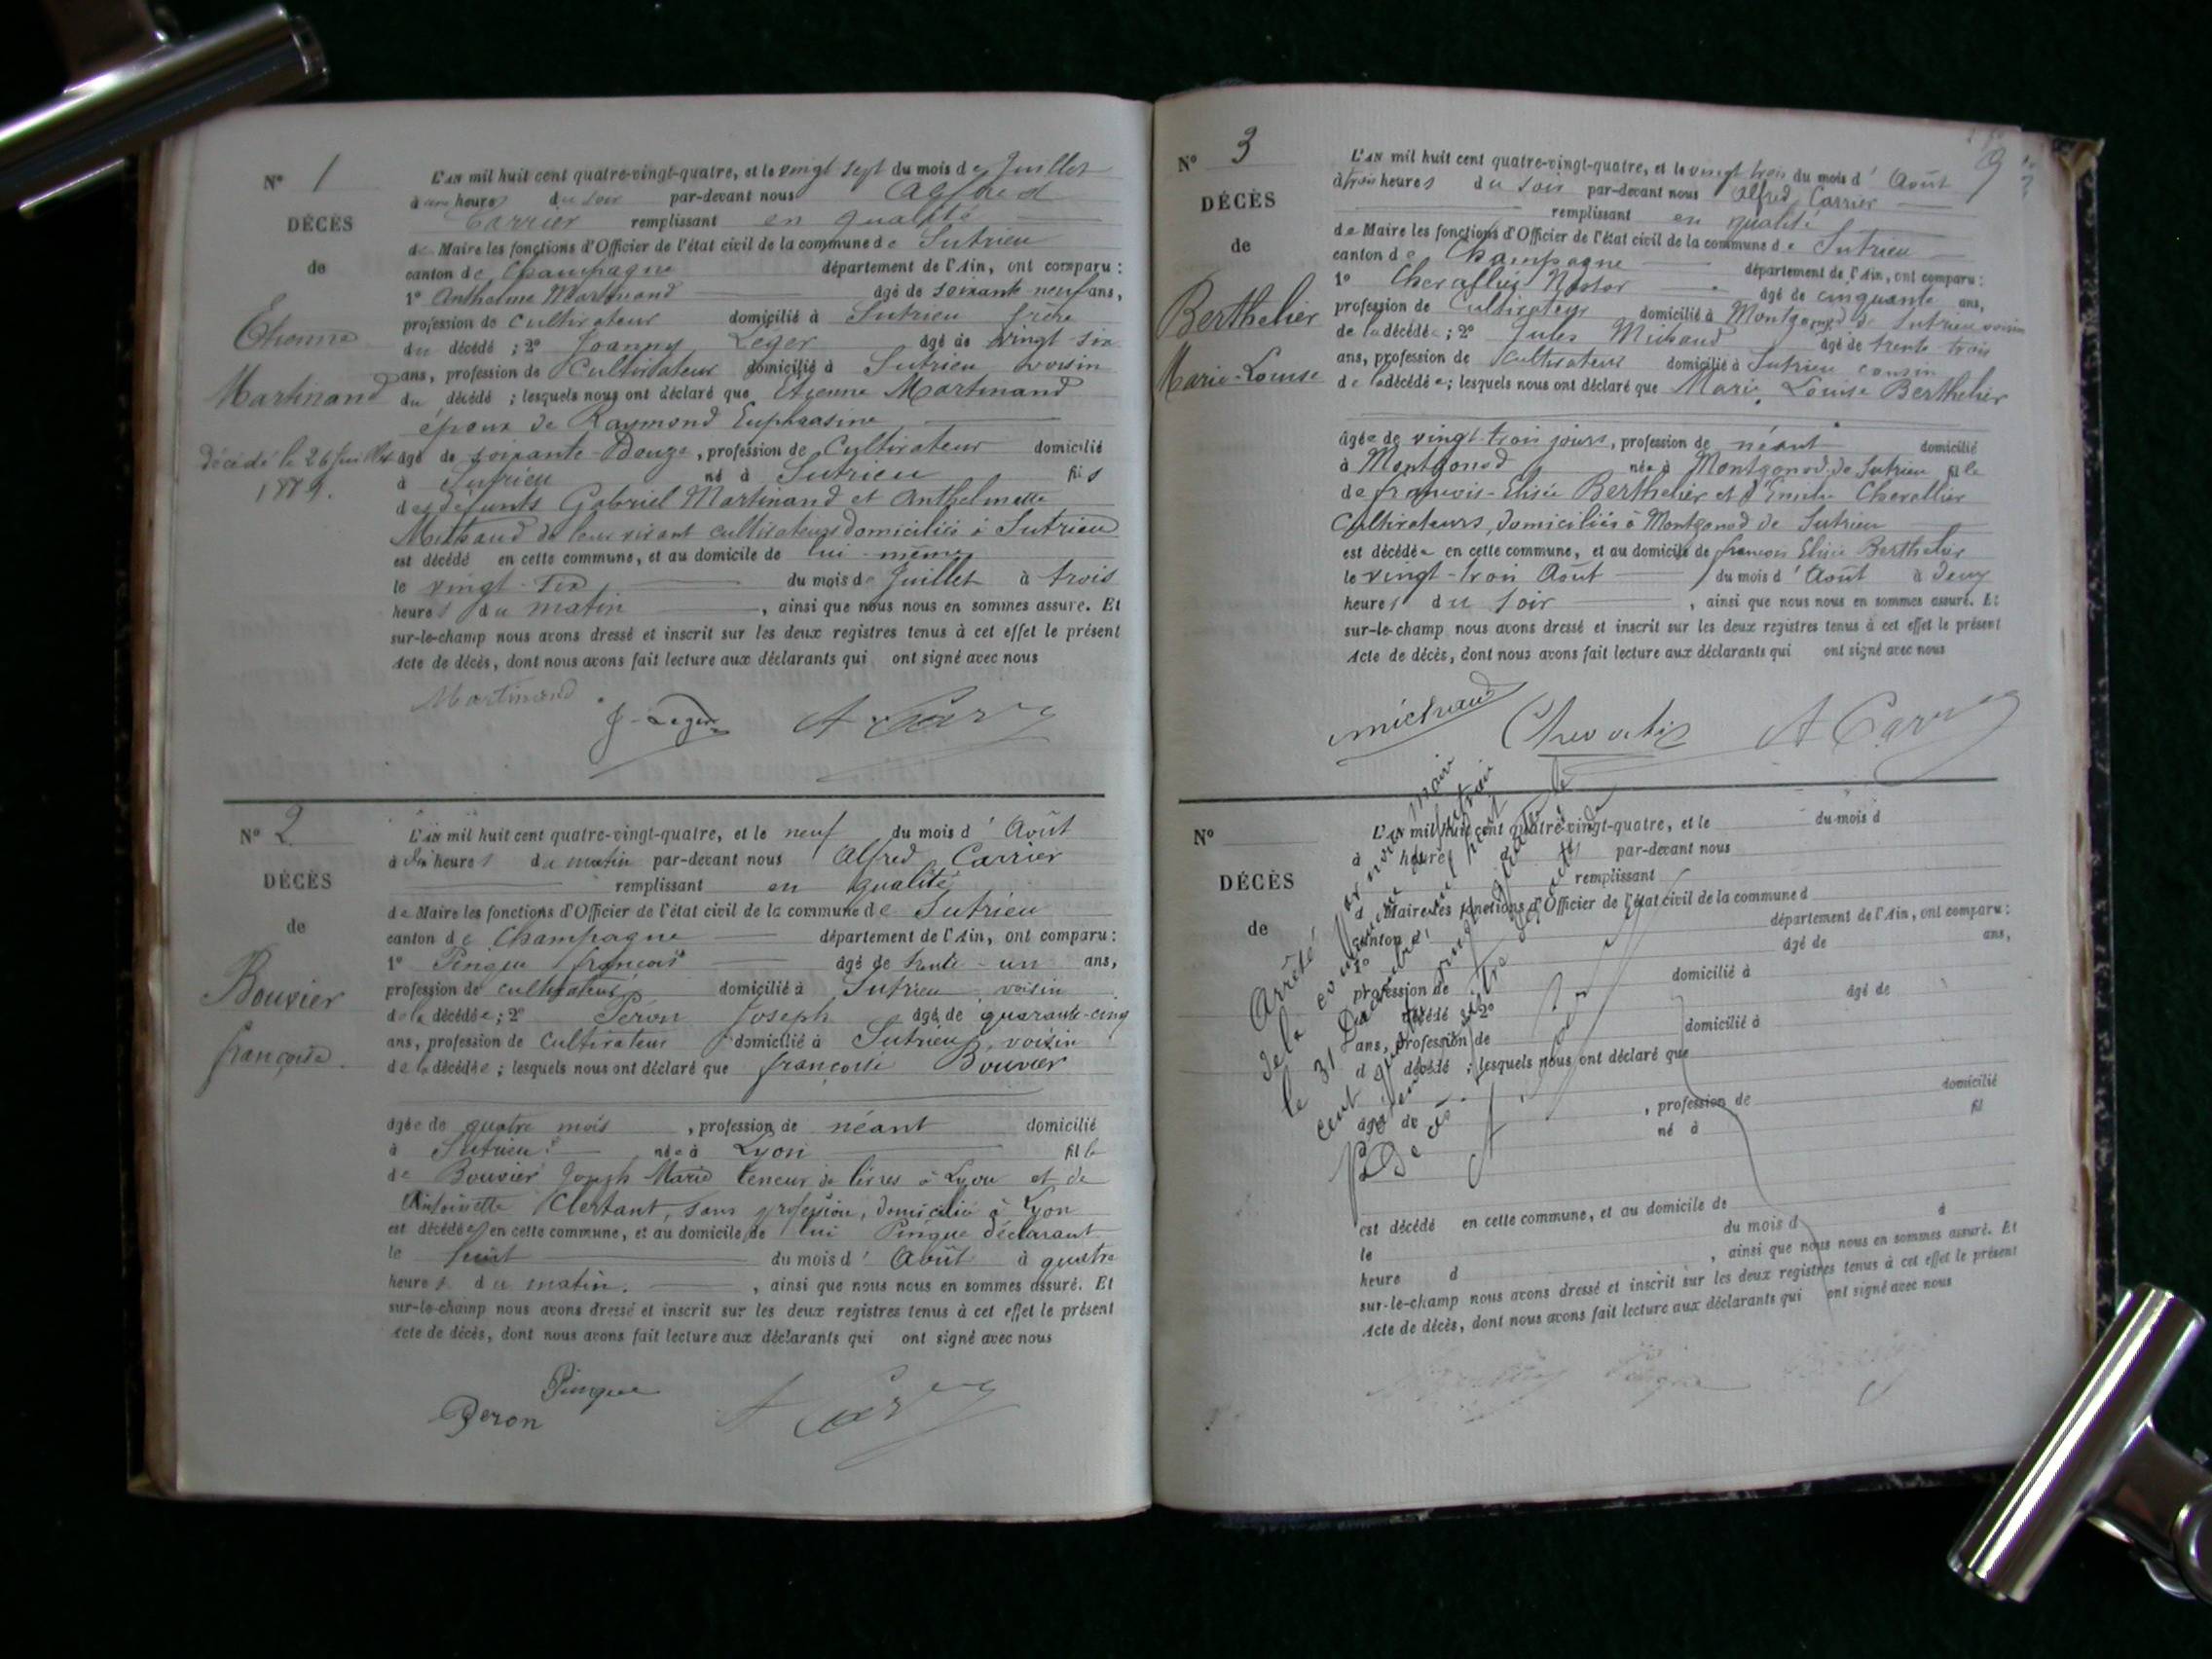 N° 1
DÉCÈS
de
Etienne
Martinand
décédé le 26 Juillet
1884.
L'AN mil huit cent quatre-vingt-quatre, et le vingt sept du mois de Juillet
à une heure du soir par-devant nous Alfred
Carrier remplissant en qualité
de Maire les fonctions d'Officier de l'état civil de la commune de Sutrieu
canton de Champagne département de l'Ain, ont comparu :
1° Anthelme Martinand âgé de soixante neuf ans,
profession de cultivateur domicilié à Sutrieu frère
du décédé ; 2° Joanny Léger âgé de vingt six
ans, profession de Cultivateur domicilié à Sutrieu voisin
du décédé ; lesquels nous ont déclaré que Etienne Martinand
époux de Raymond Euphrasine
âgé de soixante-Douze, profession de Cultivateur domicilié
à Sutrieu né à Sutrieu fils
des défunts Gabriel Martinand et Anthelmette
Michaud de leur vivant cultivateurs domiciliés à Sutrieu
est décédé en cette commune, et au domicile de lui-même
le vingt-six du mois de Juillet à trois
heures du matin, ainsi que nous nous en sommes assuré. Et
sur-le-champ nous avons dressé et inscrit sur les deux registres tenus à cet effet le présent
Acte de décès, dont nous avons fait lecture aux déclarants qui ont signé avec nous
Martinand J. Leger A Carrier
N° 2
DÉCÈS
de
Bouvier
françoise.
L'AN mil huit cent quatre-vingt-quatre, et le neuf du mois d'Août
à dix heures du matin par-devant nous Alfred Carrier
remplissant en qualité
de Maire les fonctions d'Officier de l'état civil de la commune de Sutrieu
canton de Champagne département de l'Ain, ont comparu :
1° Pingue françois âgé de trente-un ans,
profession de cultivateur domicilié à Sutrieu voisin
de la décédée ; 2° Péron Joseph âgé de quarante-cinq
ans, profession de Cultivateur domicilié à Sutrieu, voisin
de la décédée ; lesquels nous ont déclaré que françoise Bouvier
âgée de quatre mois, profession de néant domicilié
à Sutrieu née à Lyon fille
de Bouvier Joseph Marie teneur de livres à Lyon et de
Antoinette Clertant, sans profession, domicilié à Lyon
est décédée en cette commune, et au domicile de lui Pingue déclarant
le huit du mois d'Août à quatre
heures du matin., ainsi que nous nous en sommes assuré. Et
sur-le-champ nous avons dressé et inscrit sur les deux registres tenus à cet effet le présent
Acte de décès, dont nous avons fait lecture aux déclarants qui ont signé avec nous
Pingue
Peron A Carrier
9
N° 3
DÉCÈS
de
Berthelier
Marie-Louise
L'AN mil huit cent quatre-vingt-quatre, et le vingt trois du mois d'Août
à trois heures du soir par-devant nous Alfred Carrier
remplissant en qualité
de Maire les fonctions d'Officier de l'état civil de la commune de Sutrieu
canton de Champagne département de l'Ain, ont comparu :
1° Chevallier Nestor âgé de cinquante ans,
profession de Cultivateur domicilié à Montgonod de Sutrieu voisin
de la décédée ; 2° Jules Michaud âgé de trente trois
ans, profession de Cultivateur domicilié à Sutrieu cousin
de la décédée ; lesquels nous ont déclaré que Marie Louise Berthelier
âgée de vingt-trois jours, profession de néant domicilié
à Montgonod née à Montgonod de Sutrieu fille
de françois-Elisée Berthelier et d'Emilie Chevallier
Cultivateurs, domiciliés à Montgonod de Sutrieu
est décédée en cette commune, et au domicile de françois Elisée Berthelier
le vingt-trois Août du mois d'Août à deux
heures du soir, ainsi que nous nous en sommes assuré. Et
sur-le-champ nous avons dressé et inscrit sur les deux registres tenus à cet effet le présent
Acte de décès, dont nous avons fait lecture aux déclarants qui ont signé avec nous
michaud Chevallier A Carrier
N°
DÉCÈS
de
L'AN mil huit cent quatre-vingt-quatre, et le du mois d
à heure d par-devant nous
remplissant
d Maire les fonctions d'Officier de l'état civil de la commune d
canton d département de l'Ain, ont comparu :
1° âgé de ans,
profession de domicilié à
d décédé ; 2° âgé de
ans, profession de domicilié à
d décédé ; lesquels nous ont déclaré que
âgé de , profession de domicilié
à né à fil
est décédé en cette commune, et au domicile de
le du mois d à
heure d , ainsi que nous nous en sommes assuré. Et
sur-le-champ nous avons dressé et inscrit sur les deux registres tenus à cet effet le présent
Acte de décès, dont nous avons fait lecture aux déclarants qui ont signé avec nous
Arrêté par nous Maire
de la commune de Sutrieu
le 31 Décembre mil huit
cent quatre vingt quatre le